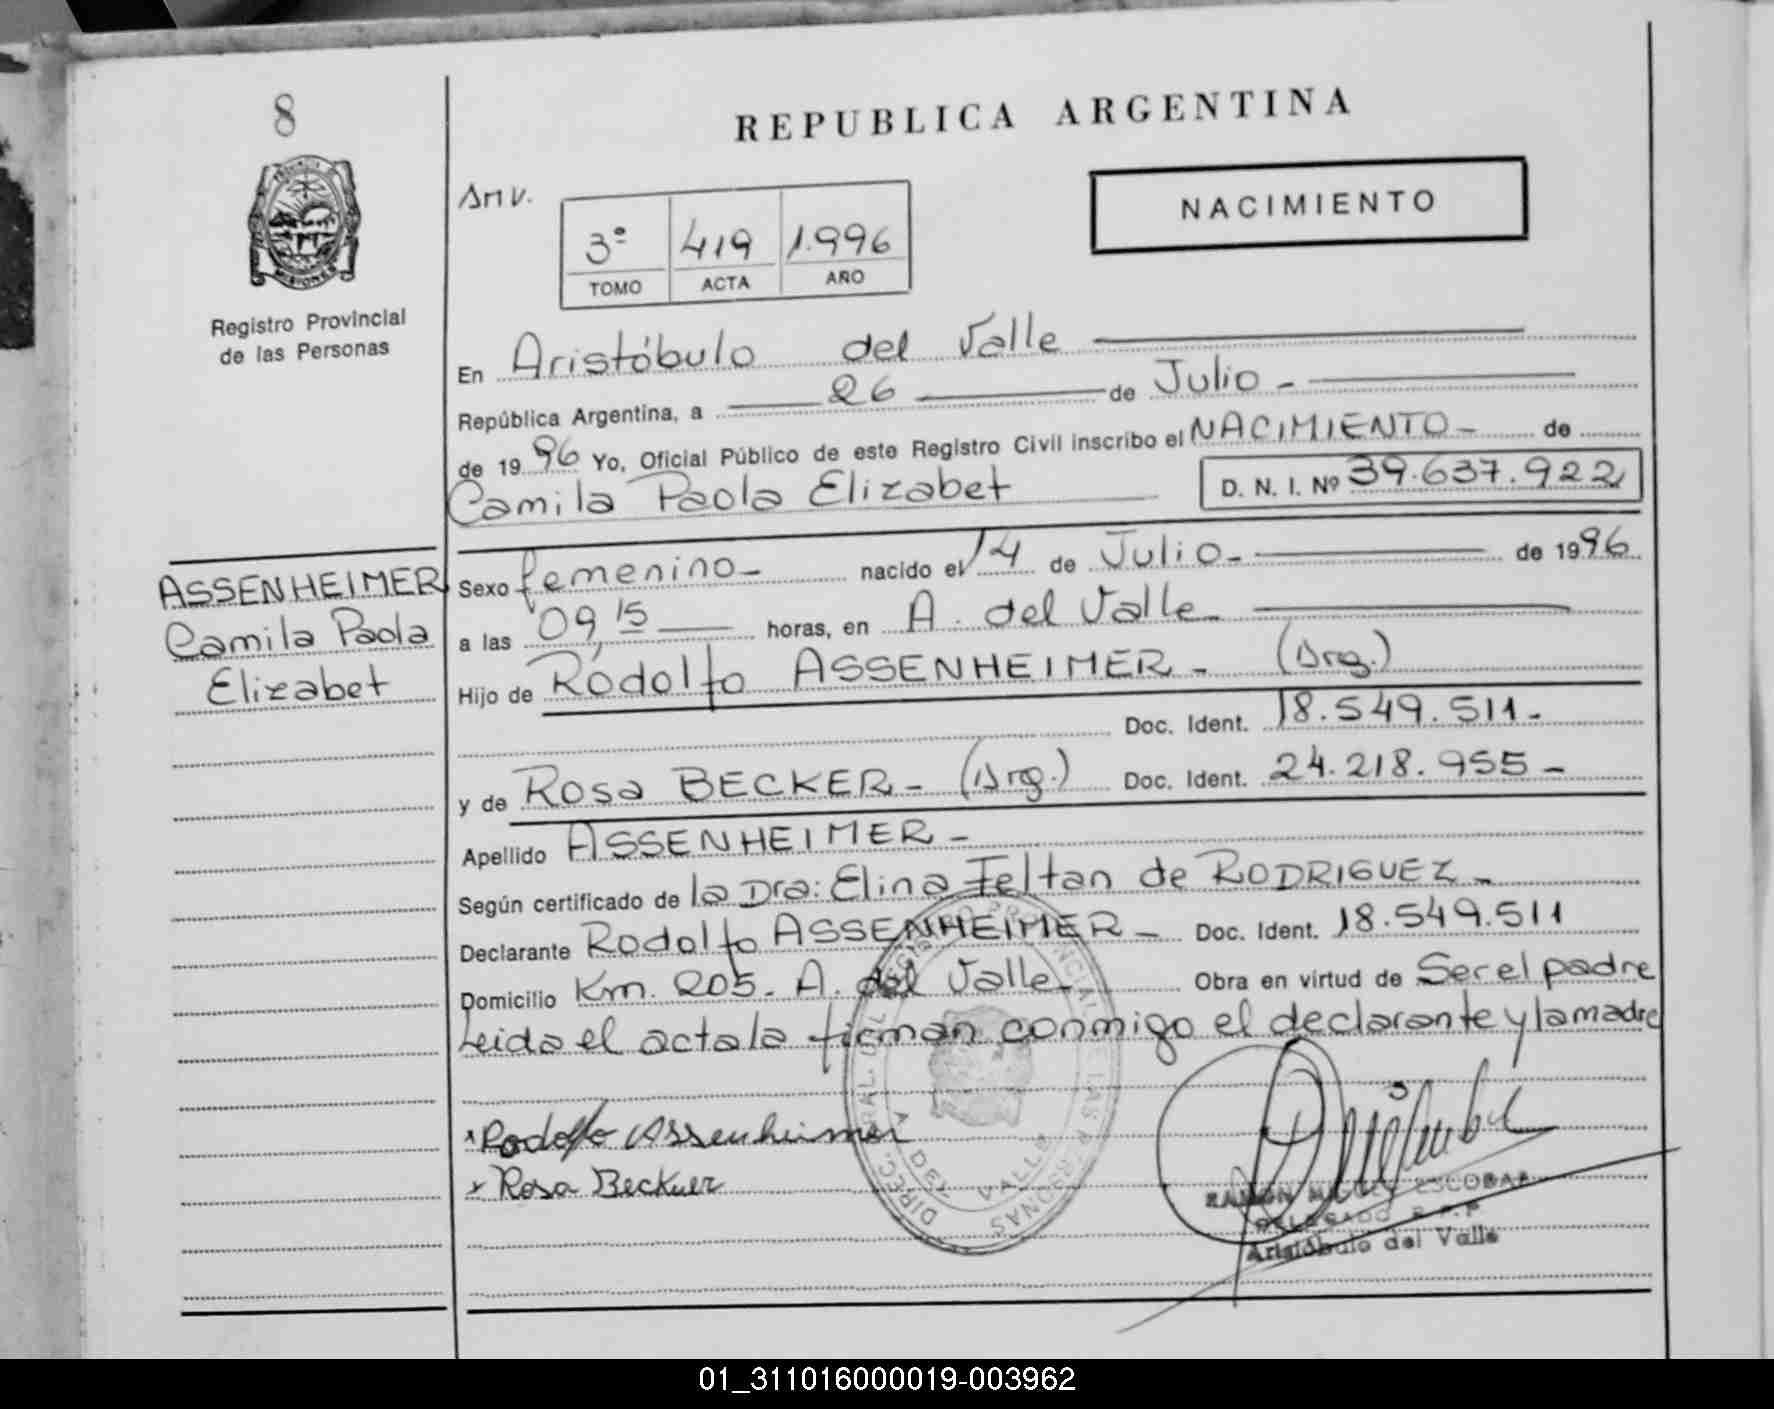 8
REPUBLICA ARGENTINA
NACIMIENTO
3º 419 1.996
TOMO ACTA AÑO
MISIONES
Registro Provincial
de las Personas
En Aristóbulo del Valle
República Argentina, a 26 de Julio -
de 1996 Yo, Oficial Público de este Registro Civil inscribo el NACIMIENTO - de
Camila Paola Elizabet D. N. I. Nº 39.637.922
ASSENHEIMER
Camila Paola
Elizabet
Sexo femenino - nacido el 14 de Julio - de 1996
a las 09,15 horas, en A. del Valle -
Hijo de Rodolfo ASSENHEIMER - (Arg.)
Doc. Ident. 18.549.511 -
y de Rosa BECKER - (Arg.) Doc. Ident. 24.218.955 -
Apellido ASSENHEIMER -
Según certificado de la Dra: Elina Feltan de RODRIGUEZ -
Declarante Rodolfo ASSENHEIMER - Doc. Ident. 18.549.511
Domicilio Km. 205 - A. del Valle - Obra en virtud de Ser el padre
Leida el acta la firman conmigo el declarante y la madre
Rodolfo Assenheimer
Rosa Beckuer
RAMON MIGUEL ESCOBAR
DELEGADO R.P.P
Aristóbulo del Valle
01_311016000019-003962